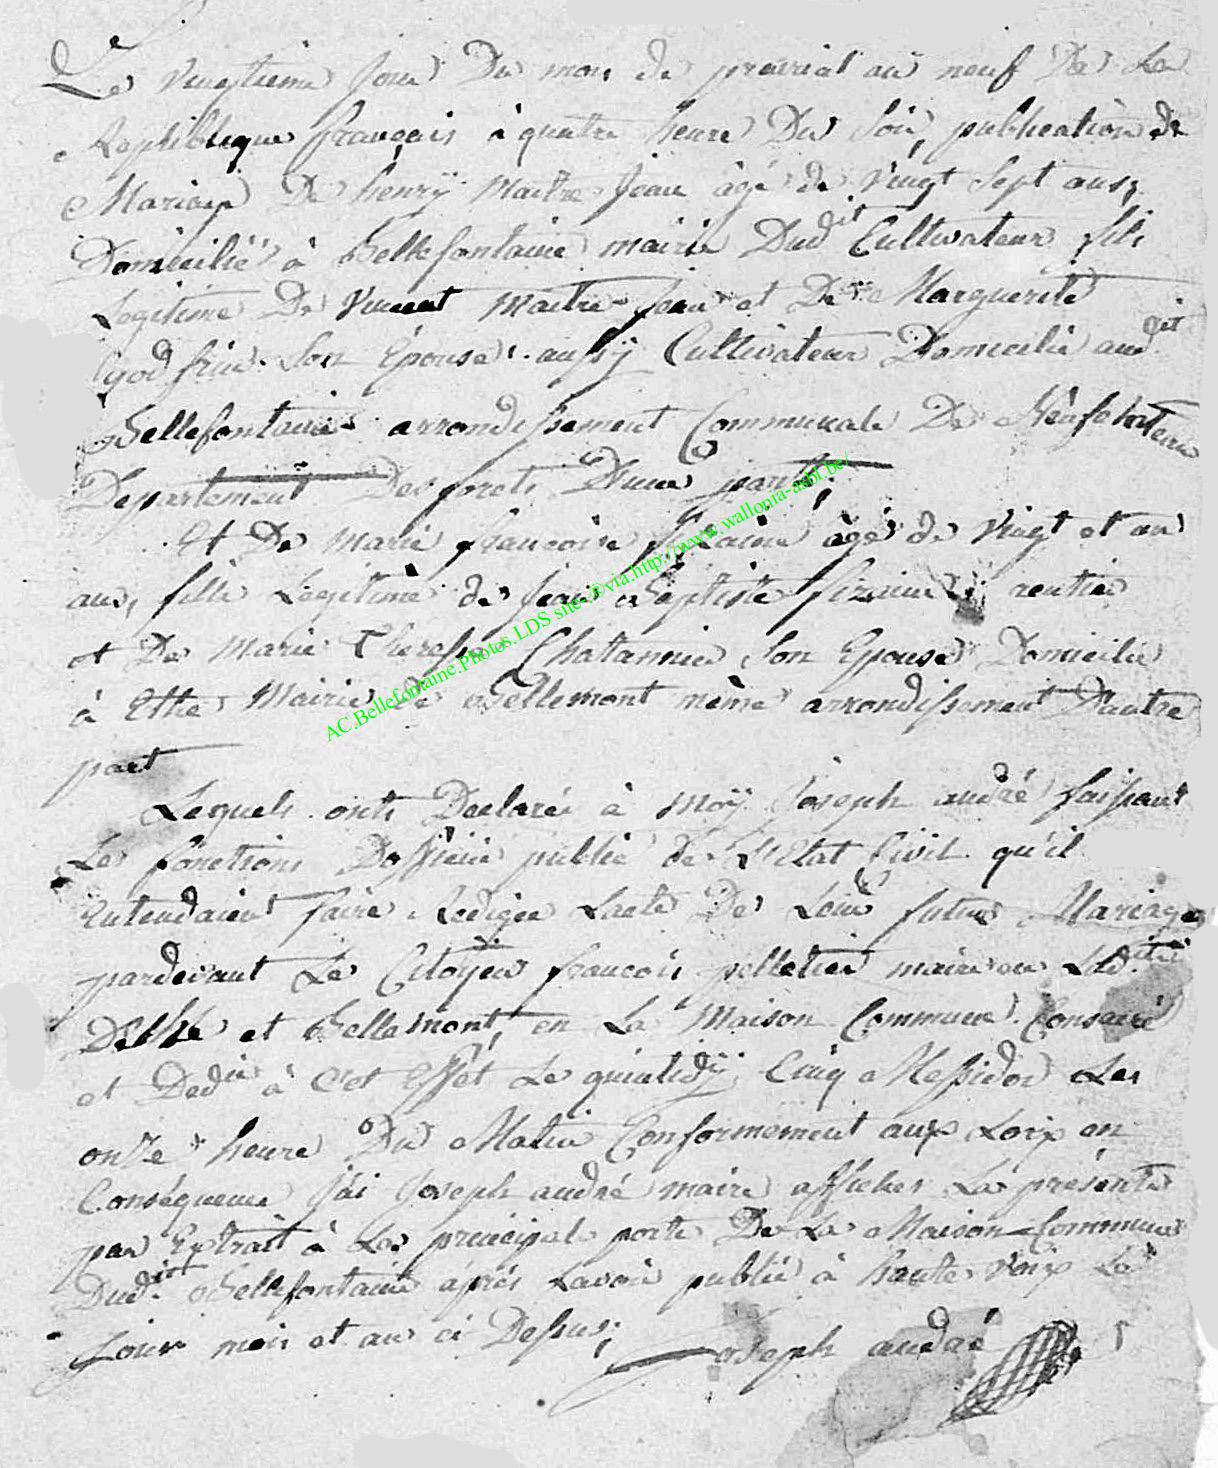 Le vingtieme jour Du mois de prairial an neuf De La
Repliblique francais à quatre heure Du Soir, publication de
Mariage De henrÿ Maitre Jean âgé de vingt Sept ans,
Domicilié à Bellefontaine mairie Dudit Cultivateur fils
Legitime De Vincent Maitre Jean et De Marguerite
godfrin Son Épouse aussÿ Cultivateur Domicilié audit
Bellefontaine arrondissement Communale De Neufchateau
Departement Des forets D'une part;
Et De Marie francoise âgé de vingt et un
ans, fille Legitime de Jean Baptiste rentier
et De Marie Therese Son Epouse Domicilié
à Ethe Mairie de Bellemont même arrondissement D'autre
part
Lequels onts Declarés à Moÿ Joseph andré faissant
Les fonctions Dofficier public de L'Etat Civil qu'il
entendaient faire Rediger Lacte De Leur futur Mariage
pardevant Le Citoÿen francois pelletier maire
et Bellemont, en La Maison Commune Consacré
et Dedié à Cet Effét Le quintidÿ Cinq Messidor Les
onze heure Du Matin Conformement aux Loix en
Conséquence J'ai Joseph andré maire afficher La présente
par Extrait à La principal porte De La Maison Commune
Dudit Bellefontaine aprés Lavoir publié à haute Voix Le
Jour mois et an ci Dessus;
Joseph andré
AC.Bellefontaine.Photos.LDS site©via.http://www.wallonia-asbl.be/